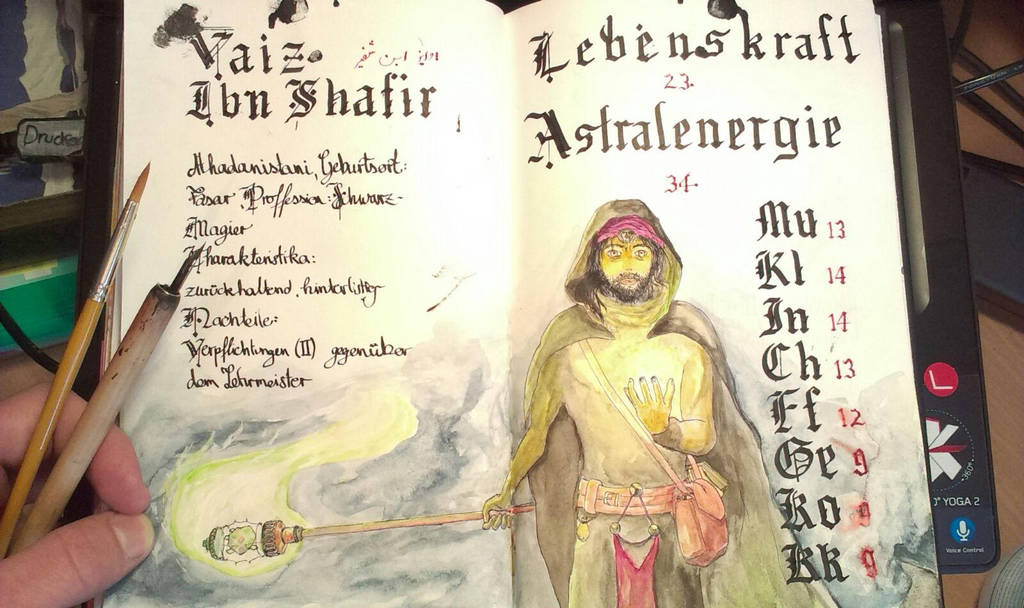 Vaiz
Ibn Shafir
ابن شفير
Mhadanistani, Geburtsort:
Fasar, Proffession: Schwarz-
Magier
Kharakteristika:
zurückhaltend, hinterlistig
Nachteile:
Verpflichtungen (II) gegenüber
dem Lehrmeister
Lebenskraft
23.
Astralenergie
34.
Mu 13
Kl 14
In 14
Ch 13
Ff 12
Ge 9
Ko 9
Kk 9
Drucke
YOGA 2
360°
Voice Control